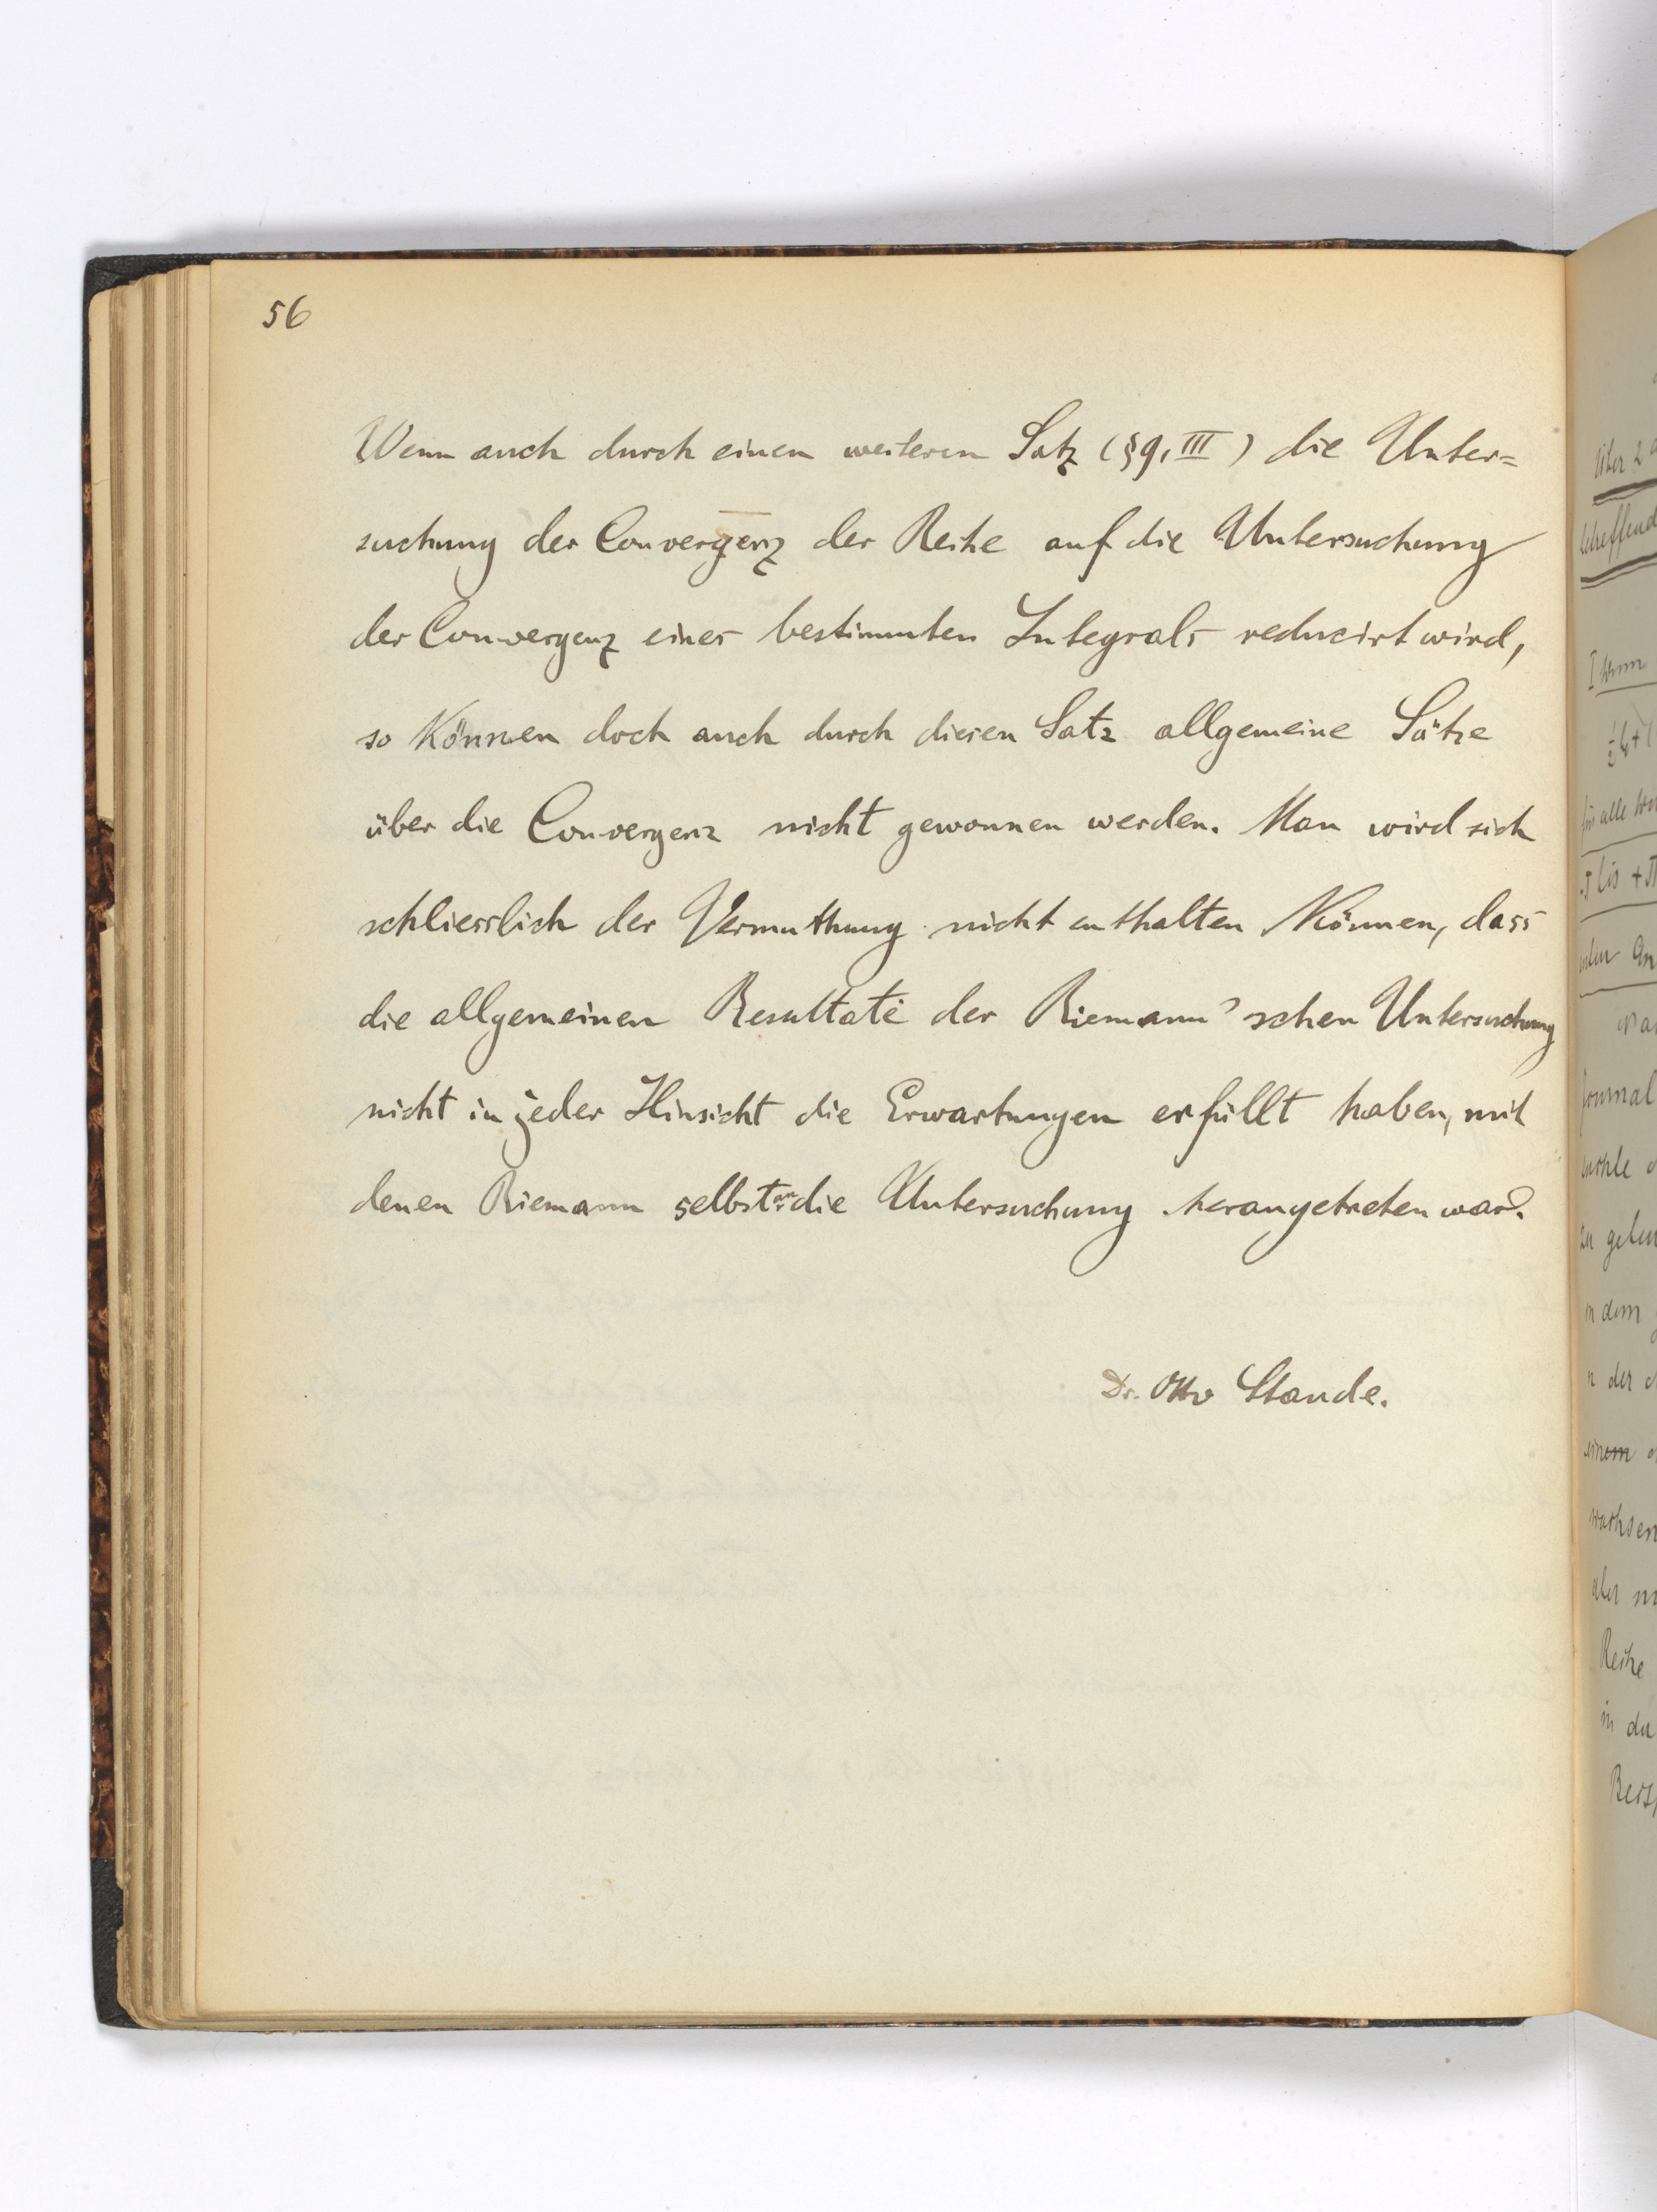 56
Wenn auch durch einen weiteren Satz (§9, III) die Unter=
suchung der Convergenz der Reihe auf die Untersuchung
der Convergenz eines bestimmten Integrals reducirt wird,
so können doch auch durch diesen Satz allgemeine Sätze
über die Convergenz nicht gewonnen werden. Man wird sich
schliesslich der Vermuthung nicht enthalten können, dass
die allgemeinen Resultate der Riemann'schen Untersuchung
nicht in jeder Hinsicht die Erwartungen erfüllt haben, mit
denen Riemann selbst an die Untersuchung herangetreten war.
Dr. Otto Staude.
betreffend
I wenn
für alle
bis + π
Journal
zu
in dem
n der
einem
wachsen
aber
Reihe
in